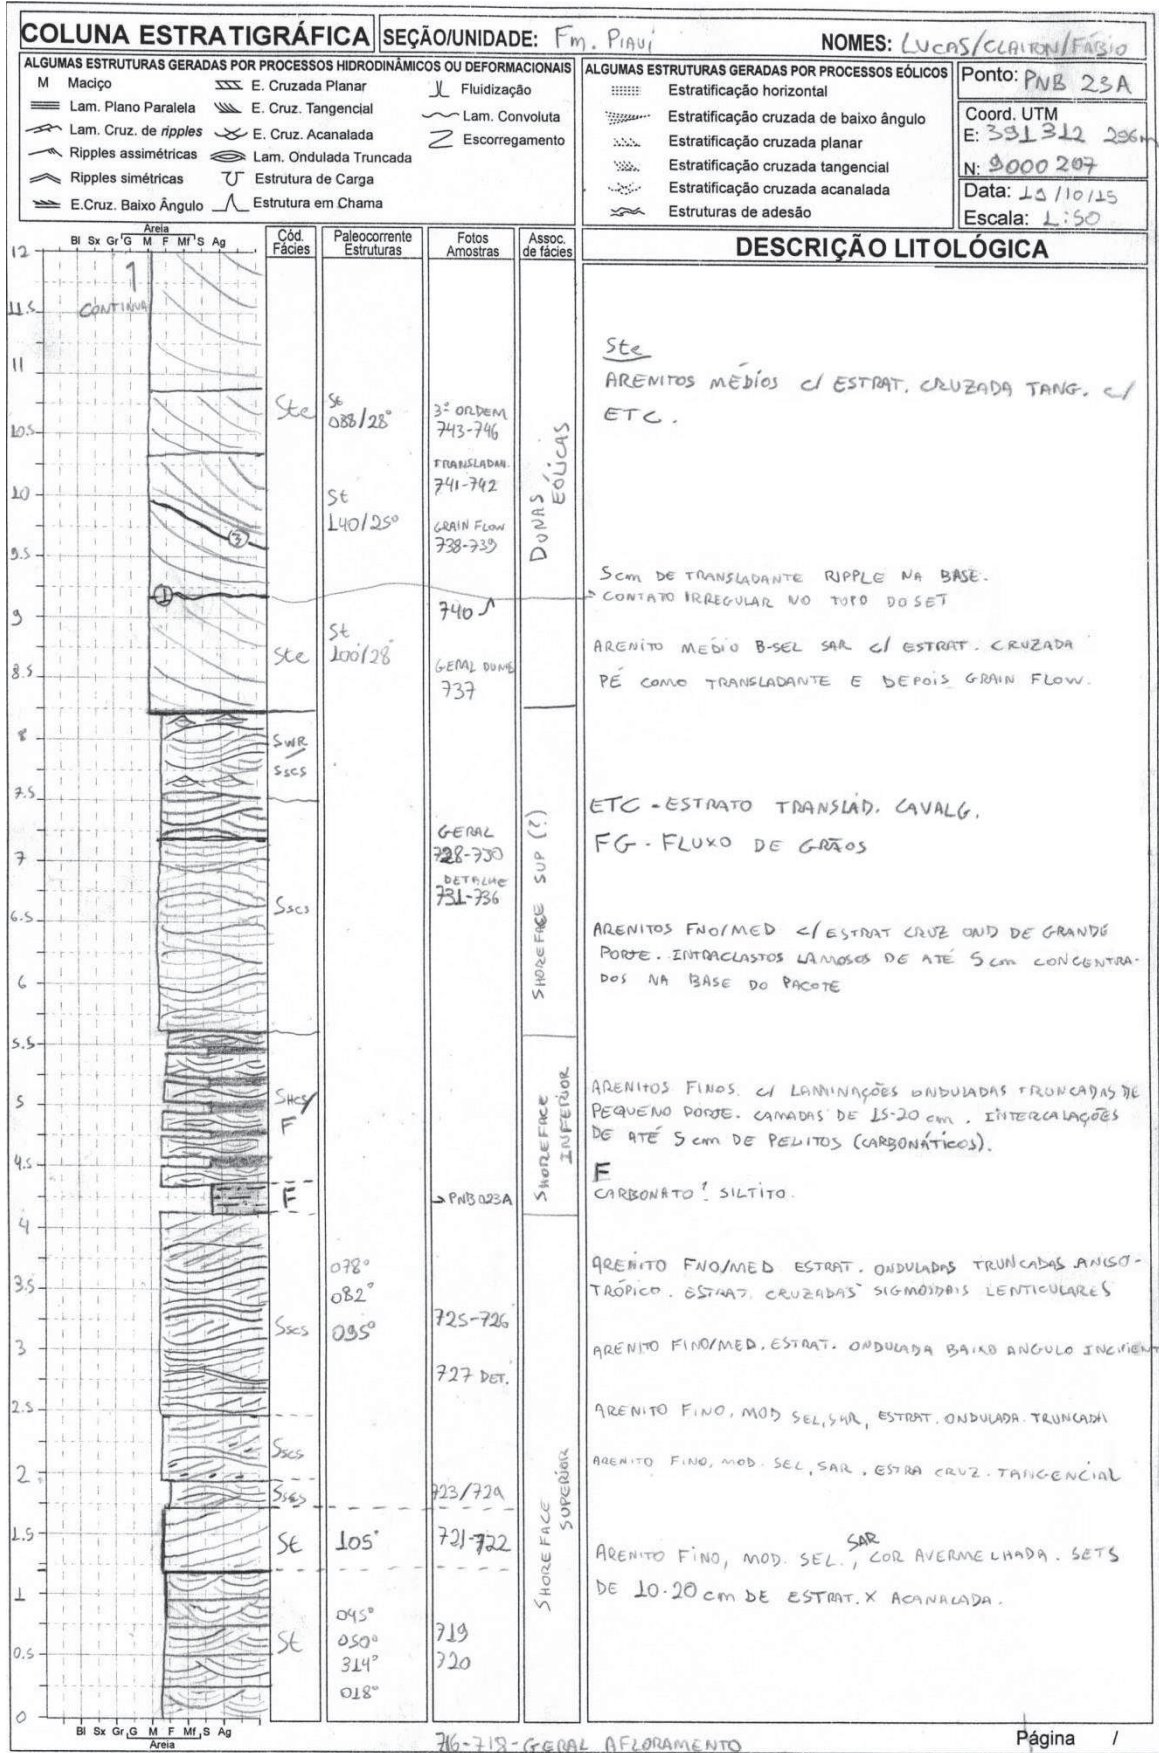 COLUNA ESTRATIGRÁFICA
SEÇÃO/UNIDADE: Fm. PIAUÍ
NOMES: LUCAS/CLAITON/FÁBIO
ALGUMAS ESTRUTURAS GERADAS POR PROCESSOS HIDRODINÂMICOS OU DEFORMACIONAIS
M Maciço
Lam. Plano Paralela
Lam. Cruz. de ripples
Ripples assimétricas
Ripples simétricas
E.Cruz. Baixo Ângulo
E. Cruzada Planar
E. Cruz. Tangencial
E. Cruz. Acanalada
Lam. Ondulada Truncada
Estrutura de Carga
Estrutura em Chama
Fluidização
Lam. Convoluta
Escorregamento
ALGUMAS ESTRUTURAS GERADAS POR PROCESSOS EÓLICOS
Estratificação horizontal
Estratificação cruzada de baixo ângulo
Estratificação cruzada planar
Estratificação cruzada tangencial
Estratificação cruzada acanalada
Estruturas de adesão
Ponto: PNB 23A
Coord. UTM
E: 391312 296m
N: 9000207
Data: 19/10/15
Escala: 1:50
Areia
Bl Sx Gr G M F Mf S Ag
Cód. Fácies
Paleocorrente Estruturas
Fotos Amostras
Assoc. de fácies
DESCRIÇÃO LITOLÓGICA
12
11.5
11
10.5
10
9.5
9
8.5
8
7.5
7
6.5
6
5.5
5
4.5
4
3.5
3
2.5
2
1.5
1
0.5
0
CONTINUA
3
1
Ste
Ste
SWR
Sscs
Sscs
SHCS/
F
F
Sscs
Sscs
Sscs
St
St
St
088/28°
St
140/25°
St
100/28°
078°
082°
095°
105°
045°
050°
314°
018°
3ª ORDEM
743-746
TRANSLADAN.
741-742
GRAIN FLOW
738-739
740
GERAL DUNE
737
GERAL
728-730
DETALHE
731-736
PNB023A
725-726
727 DET.
723/724
721-722
719
720
DUNAS EÓLICAS
SHOREFACE SUP (?)
SHOREFACE INFERIOR
SHOREFACE SUPERIOR
Ste
ARENITOS MÉDIOS c/ ESTRAT. CRUZADA TANG. c/
ETC.
5cm DE TRANSLADANTE RIPPLE NA BASE.
CONTATO IRREGULAR NO TOPO DO SET
ARENITO MEDIO B-SEL SAR c/ ESTRAT. CRUZADA
PÉ COMO TRANSLADANTE E DEPOIS GRAIN FLOW.
ETC - ESTRATO TRANSLAD. CAVALG.
FG - FLUXO DE GRÃOS
ARENITOS FNO/MED c/ ESTRAT CRUZ OND DE GRANDE
PORTE. INTRACLASTOS LAMOSOS DE ATÉ 5 cm CONCENTRA-
DOS NA BASE DO PACOTE
ARENITOS FINOS. c/ LAMINAÇÕES ONDULADAS TRUNCADAS DE
PEQUENO PORTE. CAMADAS DE 15-20 cm. INTERCALAÇÕES
DE ATÉ 5 cm DE PELITOS (CARBONÁTICOS).
F
CARBONATO? SILTITO.
ARENITO FNO/MED ESTRAT. ONDULADAS TRUNCADAS ANISO-
TRÓPICO. ESTRAT. CRUZADAS SIGMOIDAIS LENTICULARES
ARENITO FINO/MED. ESTRAT. ONDULADA BAIXO ANGULO INCIPIENT
ARENITO FINO, MOD SEL, SAR, ESTRAT. ONDULADA. TRUNCADA
ARENITO FINO, MOD. SEL, SAR, ESTRA CRUZ. TANGENCIAL
ARENITO FINO, MOD. SEL., SAR COR AVERMELHADA. SETS
DE 10-20 cm DE ESTRAT. X ACANALADA.
Bl Sx Gr G M F Mf S Ag
Areia
716-718-GERAL AFLORAMENTO
Página /